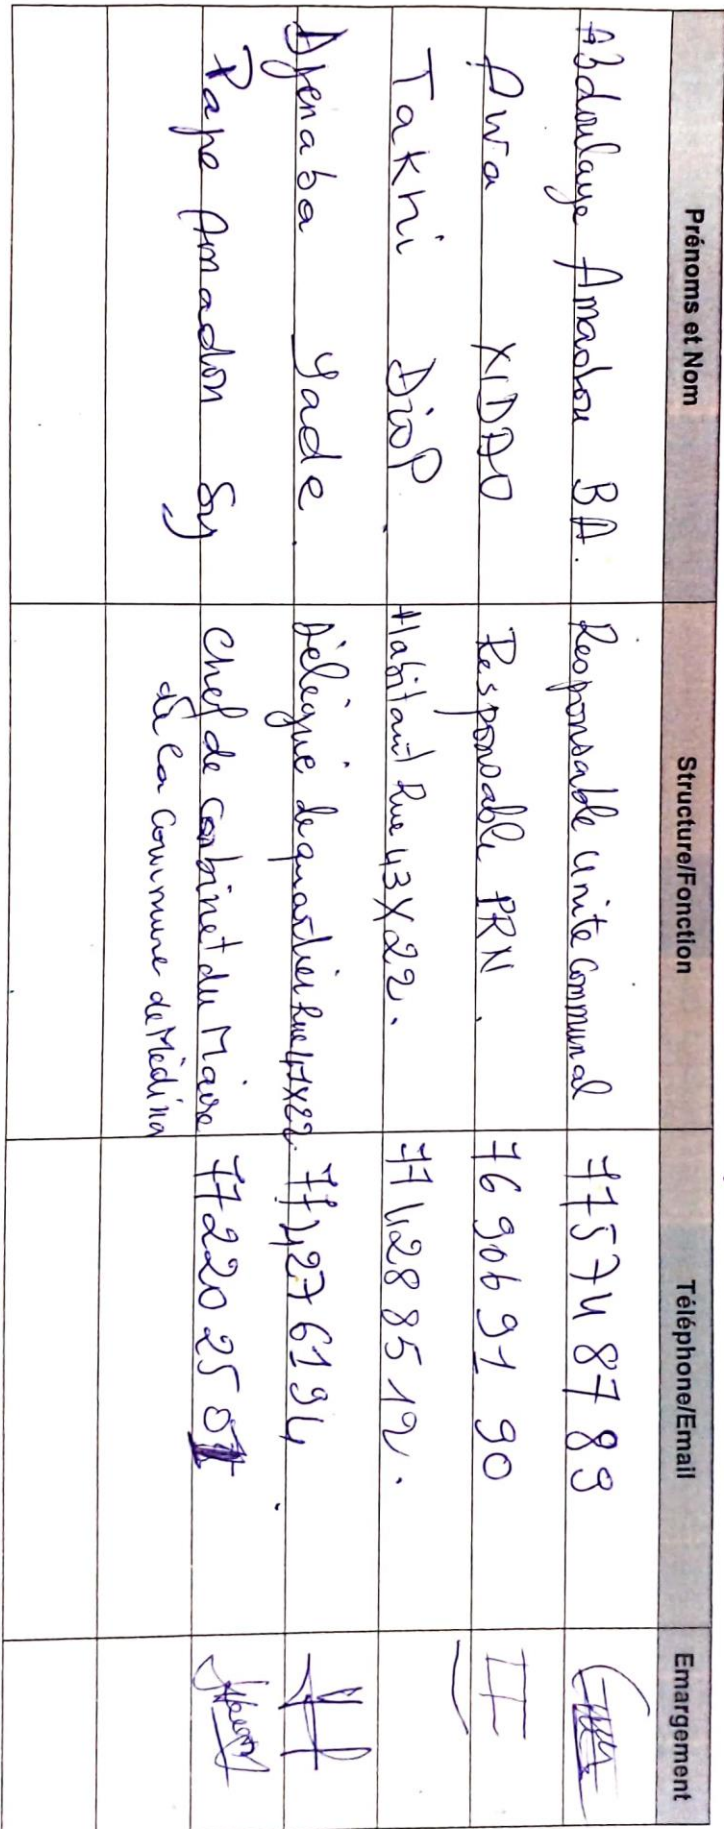 Prénoms et Nom Structure/Fonction Téléphone/Email Emargement
Abdoulaye Amadou BA. Responsable Unite Communal 77 574 87 89
Awa Responsable PRN. 76 906 91 90
Takhi Diop. Habitant Rue 43X22. 77 428 85 12.
Djenaba Yade. Délégué de quartier Rue 41X22. 77 427 61 94
Pape Amadou Sy Chef de Cabinet du Maire 77 220 25
de la Commune de Médina